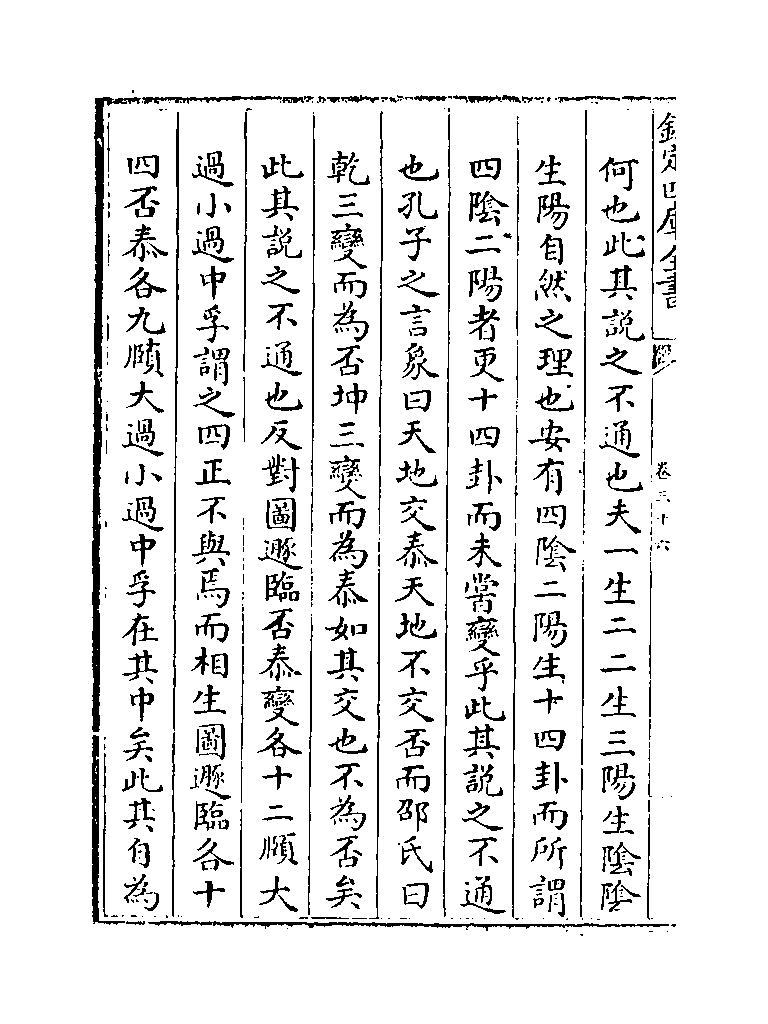 欽定四庫全書
卷三十六
何也此其說之不通也夫一生二二生三陽生陰陰
生陽自然之理也安有四陰二陽生十四卦而所謂
四陰二陽者更十四卦而未嘗變乎此其說之不通
也孔子之言象曰天地交泰天地不交否而邵氏曰
乾三變而為否坤三變而為泰如其交也不為否矣
此其說之不通也反對圖遯臨否泰變各十二頤大
過小過中孚謂之四正不與焉而相生圖遯臨各十
四否泰各九頤大過小過中孚在其中矣此其自為